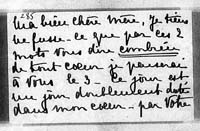 285
Ma bien chère mère, je tiens
ne fusse-ce que par ces 2
mots vous dire combien
de tout cœur je penserai
à vous le 3. Ce jour est
un jour doublement
dans mon cœur - par votre